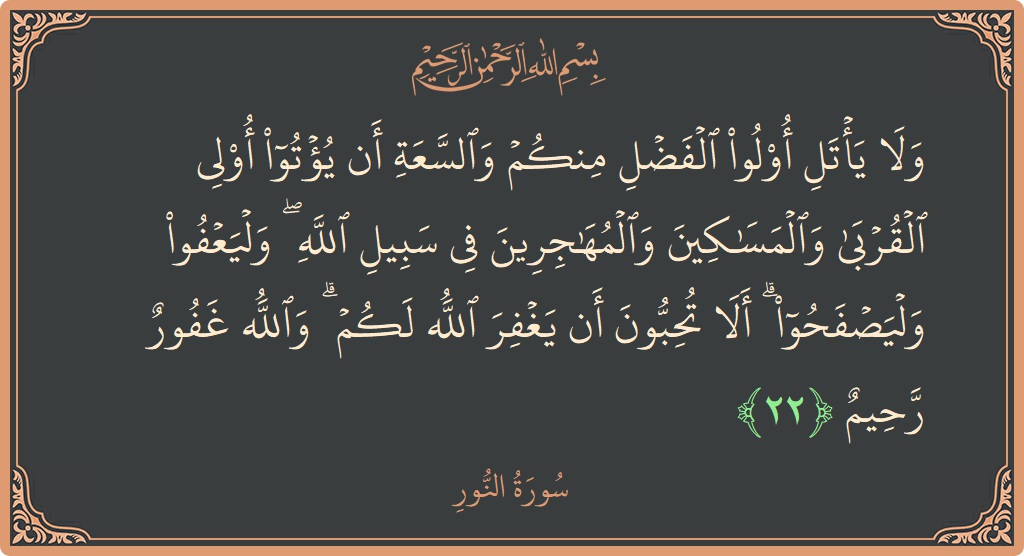 بِسْمِ اللهِ الرَّحْمٰنِ الرَّحِيْمِ
وَلَا يَأۡتَلِ أُوْلُواْ ٱلۡفَضۡلِ مِنكُمۡ وَٱلسَّعَةِ أَن يُؤۡتُوٓاْ أُوْلِى
ٱلۡقُرۡبَىٰ وَٱلۡمَسَـٰكِينَ وَٱلۡمُهَـٰجِرِينَ فِى سَبِيلِ ٱللَّهِ ۖ وَلۡيَعۡفُواْ
وَلۡيَصۡفَحُوٓاْ ۗ أَلَا تُحِبُّونَ أَن يَغۡفِرَ ٱللَّهُ لَكُمۡ ۗ وَٱللَّهُ غَفُورٌ
رَّحِيمٌ ﴿٢٢﴾
سُورَةُ النُّورِ